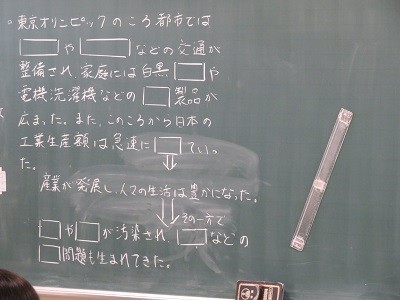 。東京オリンピックのころ都市では
□や□などの交通が
整備され、家庭には白黒□や
電機洗濯機などの□製品が
広まった。また、このころから日本の
工業生産額は急速に□ていっ
た。
産業が発展し、人々の生活は豊かになった。
その一方で
□や□が汚染され、□などの
□問題も生まれてきた。